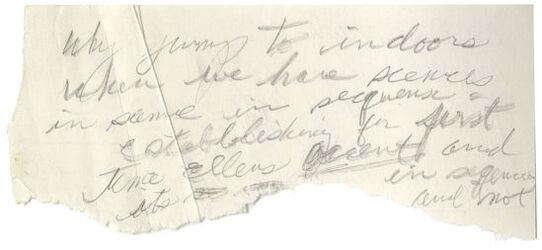 why jump to indoors
when we have scenes
in scene in sequense -
establishing for first
time Ellens accent and
its in sequence
and not